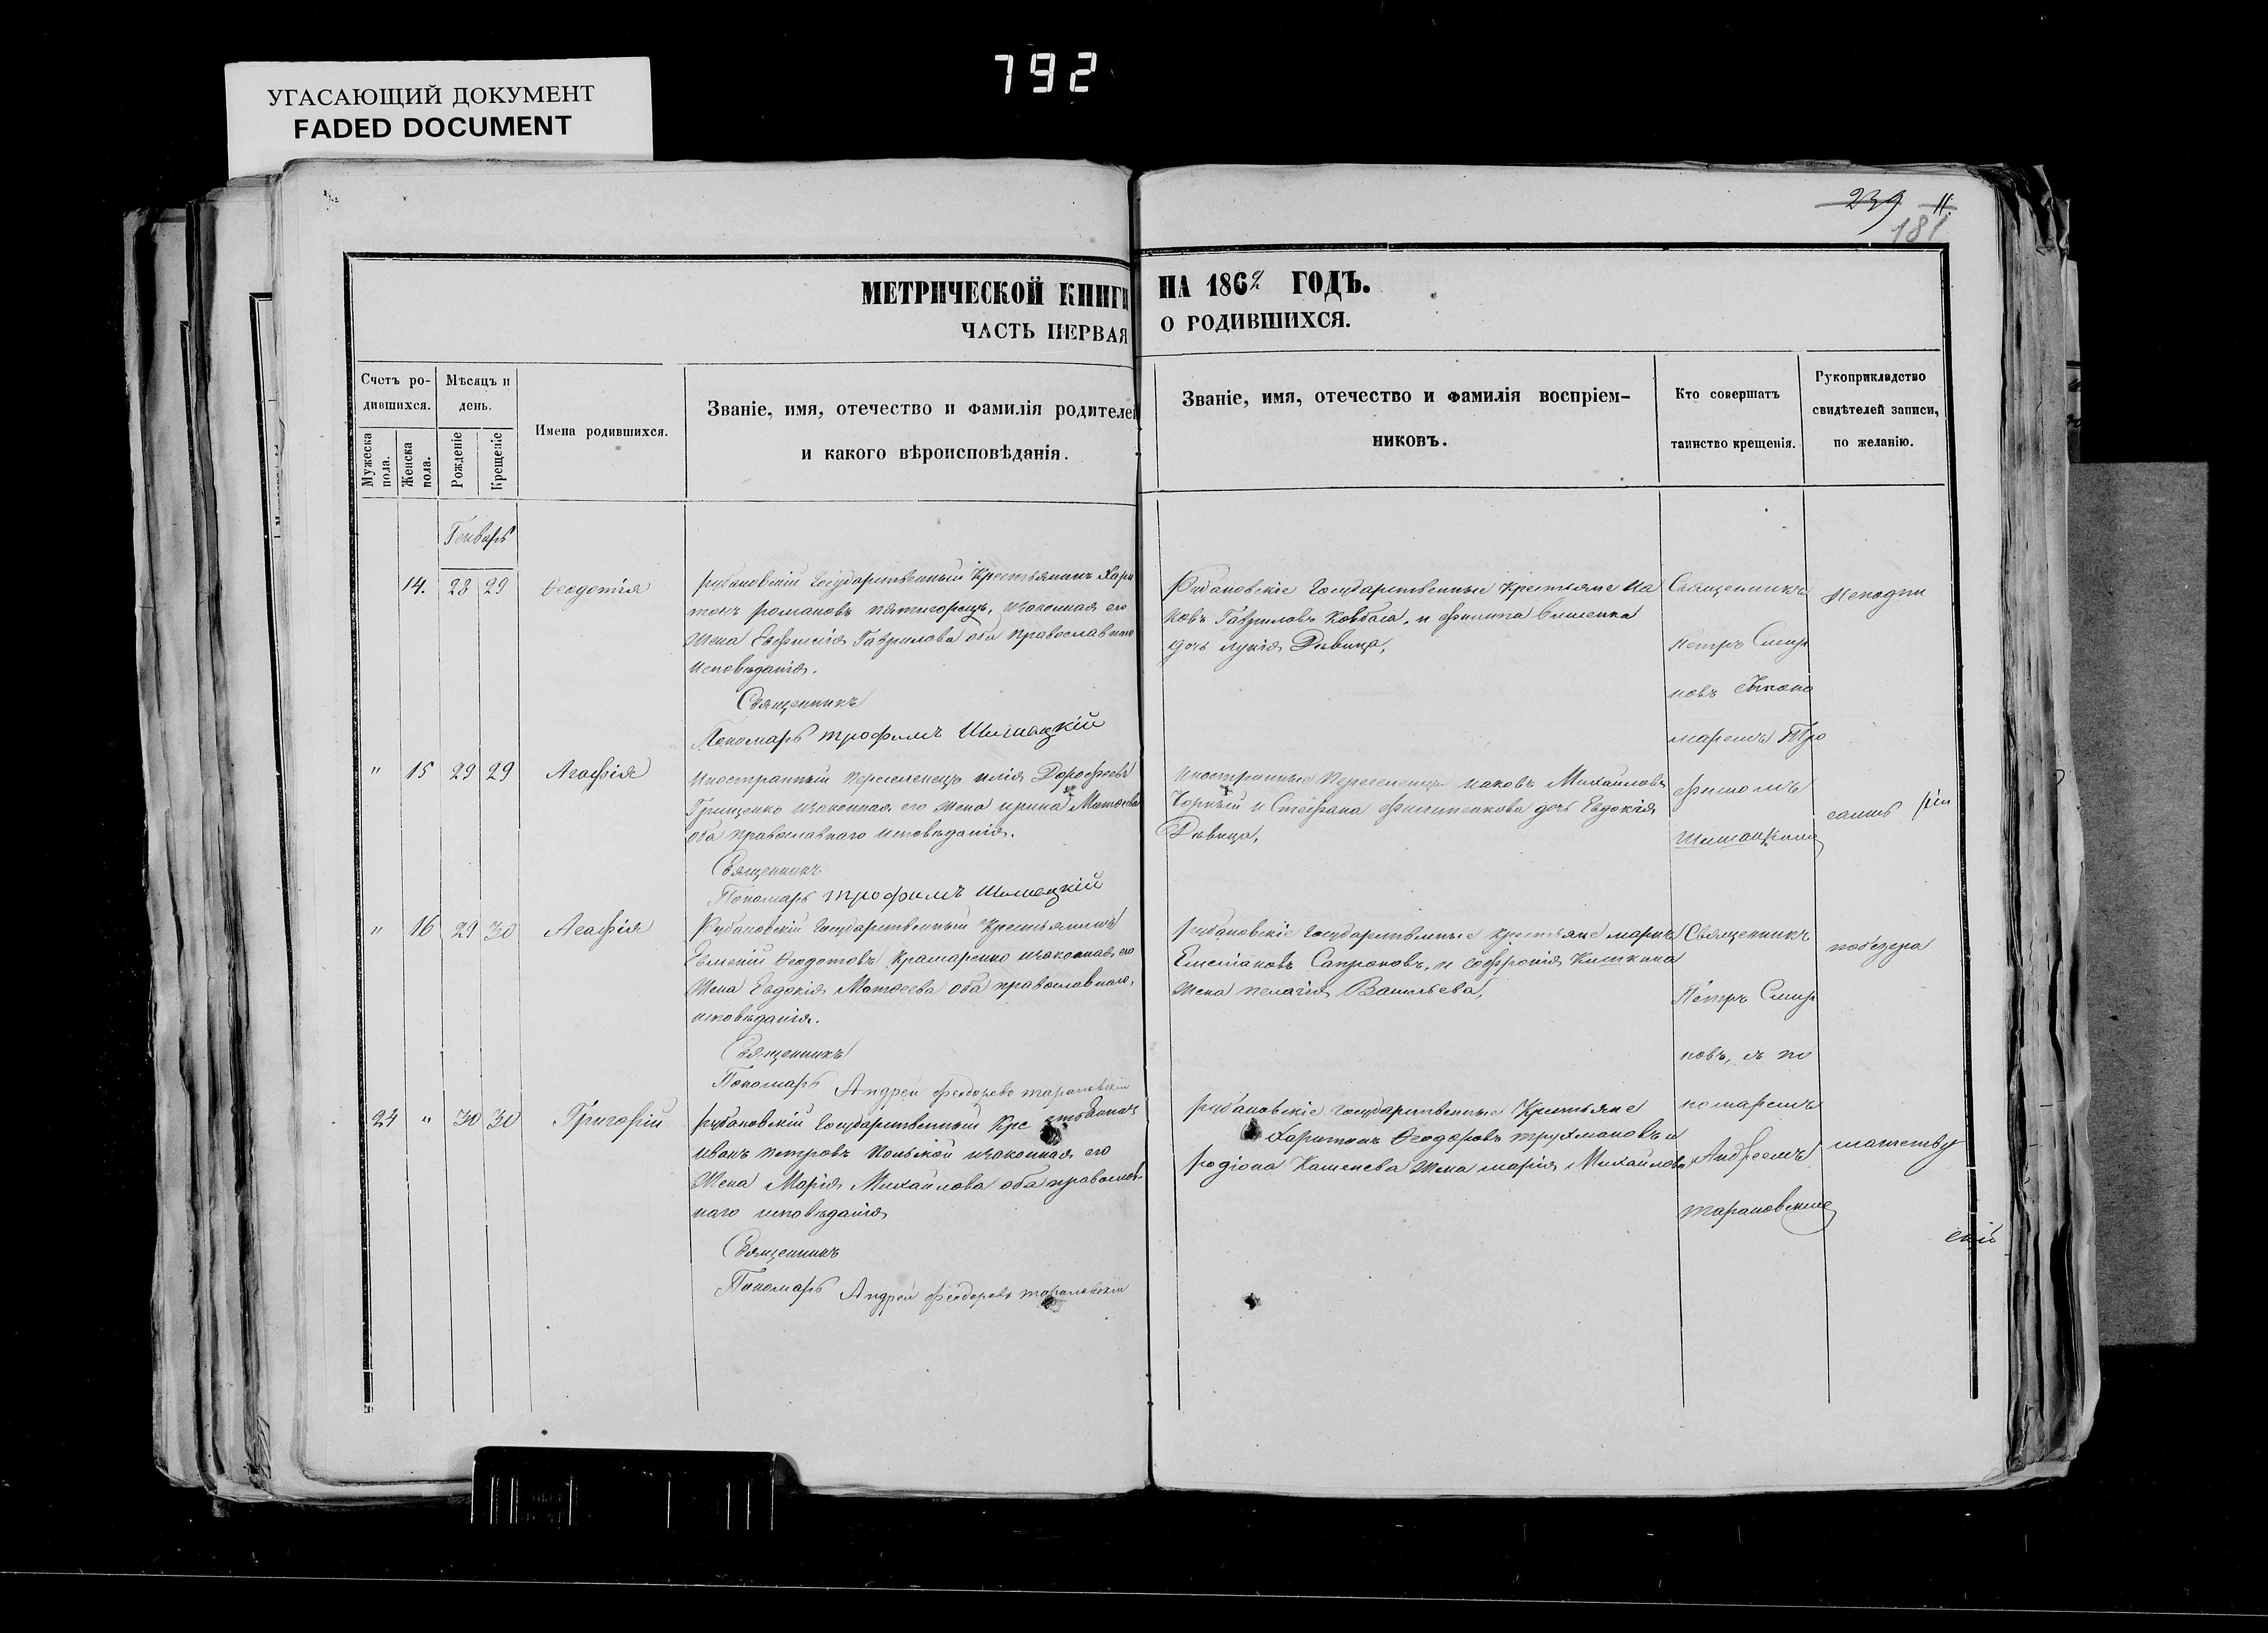 792
УГАСАЮЩИЙ ДОКУМЕНТ
FADED DOCUMENT
239 11.
181
МЕТРИЧЕСКОЙ КНИГИ НА 1862 ГОДЪ.
ЧАСТЬ ПЕРВАЯ О РОДИВШИХСЯ.
Счетъ ро-
дившихся.
Мужеска пола.
Женска пола.
Мѣсяцъ и
день.
Рожденіе
Крещеніе
Имена родившихся.
Званіе, имя, отечество и фамилія родителей
и какого вѣроисповѣданія.
Званіе, имя, отечество и фамилія воспріем-
никовъ.
Кто совершатъ
таинство крещенія.
Рукоприкладство
свидѣтелей записи,
по желанію.
Генварь
14. 28 29 Ѳеодотія
рубановскій Государственный Крестьянинъ Хари
тонъ романовъ пятигорецъ, изаконная его
Жена Евфимія Гаврилова оба православнаго
исповѣданія.
Священникъ
Пономарь трофимъ Шишацкій
Рубановскіе Государственные Крестьяне Иа
ковъ Гавриловъ Ковбаса, и филипа
дочь лукія Дѣвица,
Священникъ
Петръ Смир
новъ съпоно
маремъ Тро
фимомъ
Шишацкимъ
" 15 29 29 Агафія
иностранный переселенецъ илія Дорофеевъ
Грищенко изаконная его жена ирина Матѳева
оба православнаго исповѣданія.
Священникъ
Пономарь трофимъ Шишацкій
иностранные переселенцы иаковъ Михайловъ
Чорный и Стефана филипенкова дочь Евдокія
Дѣвица,
" 16 29 30 Агафія
Рубановскій Государственный Крестьянинъ
Евменій Ѳеодотовъ Крамаренко изаконная его
Жена Евдокія Матѳеева оба православнаго,
исповѣданія.
Священникъ
Пономарь Андрей феодорово тарановскій
рубановскіе Государственные крестьяне марко
Емеліановъ Сапроновъ, и софронія Кишкина
жена пелагія Васильева,
Священникъ
Петръ Смир
новъ, съ по
номаремъ
Андреемъ
тарановскимъ
24 " 30 30 Григорій
рубановскій Государственный Крестьянинъ
иванъ петровъ изаконная его
Жена Марія Михайлова оба православ-
наго исповѣданія
Священникъ
Пономарь Андрей феодорово тарановскій
рубановскіе государственные Крестьяне
Харитонъ Ѳеодоровъ трухмановъ и
родіона Каменева жена марія Михайлова